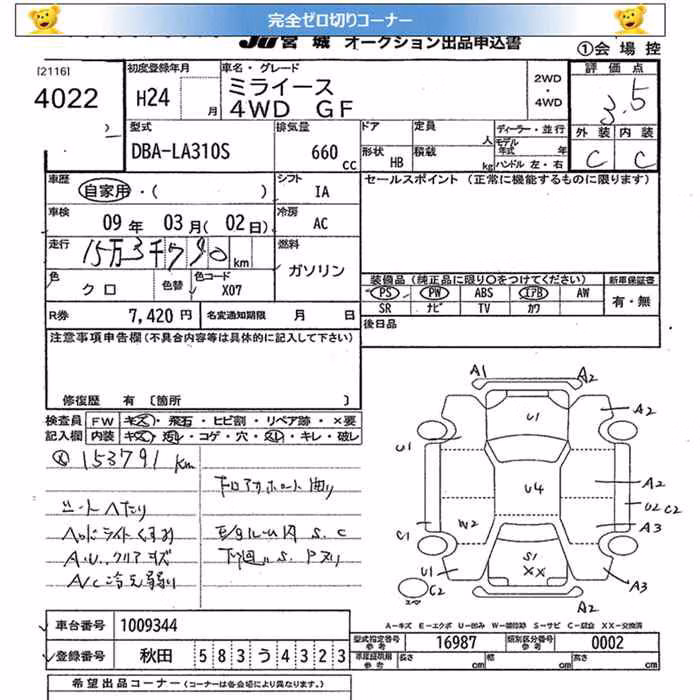 完全ゼロ切りコーナー
JU宮城 オークション出品申込書
①会場控
[2116]
4022
初度登録年月
H24 月
車名・グレード
ミライース
4WD GF
2WD
・
4WD
評価点
3.5
外装 内装
C C
型式
DBA-LA310S
排気量
660 cc
ドア 定員 人
形状 HB 積載 kg
ディーラー・並行
モデル年式 年
ハンドル 左・右
車歴
自家用・( )
シフト
IA
セールスポイント(正常に機能するものに限ります)
車検
09年 03月(02日)
冷房
AC
走行
15万3千790km
燃料
ガソリン
色
クロ
色替
色コード
X07
装備品(純正品に限り○をつけてください)
新車保証書
PS PW ABS エアB AW
有・無
SR ナビ TV カワ
R券 7,420円 名変通知期限 月 日
後日品
注意事項申告欄(不具合内容等は具体的に記入して下さい)
修復歴 有 〔箇所 〕
検査員 FW キズ・飛石・ヒビ割・リペア跡・×要
記入欄 内装 キズ・汚レ・コゲ・穴・スレ・キレ・破レ
153791km
シートへたり
ヘッドライトくすみ
A/C冷え弱り
下廻りS.
A1
A2
U1
A2
U1
U4
A2
U2 C2
W2
A3
C1
U1
S1
XX
C2
A3
A2
A-キズ E-エクボ U-凹み W-補修跡 S-サビ C-腐食 XX-交換済
車台番号 1009344
登録番号 秋田 583う4323
型式指定番号 参考 16987 類別区分番号 参考 0002
長さ cm 幅 cm 高さ cm
希望出品コーナー(コーナーは各会場により異なります。)